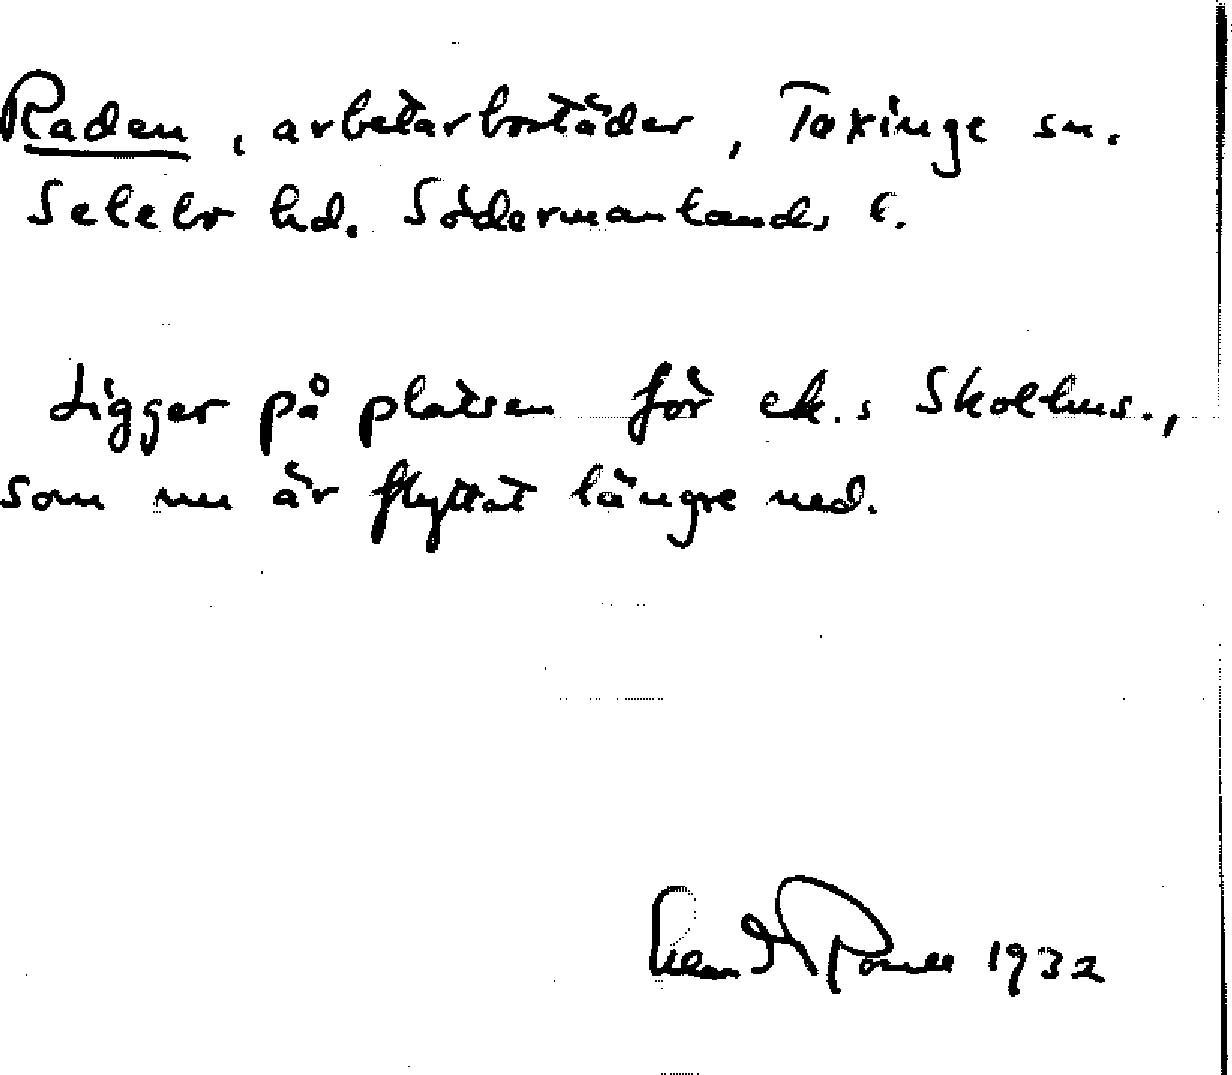 Raden, arbetarbostäder, Taxinge sn.
Selebo hd. Södermanlands l.
Ligger på platsen för ek.: Skolhus.,
som nu är flyttat längre ned.
1932